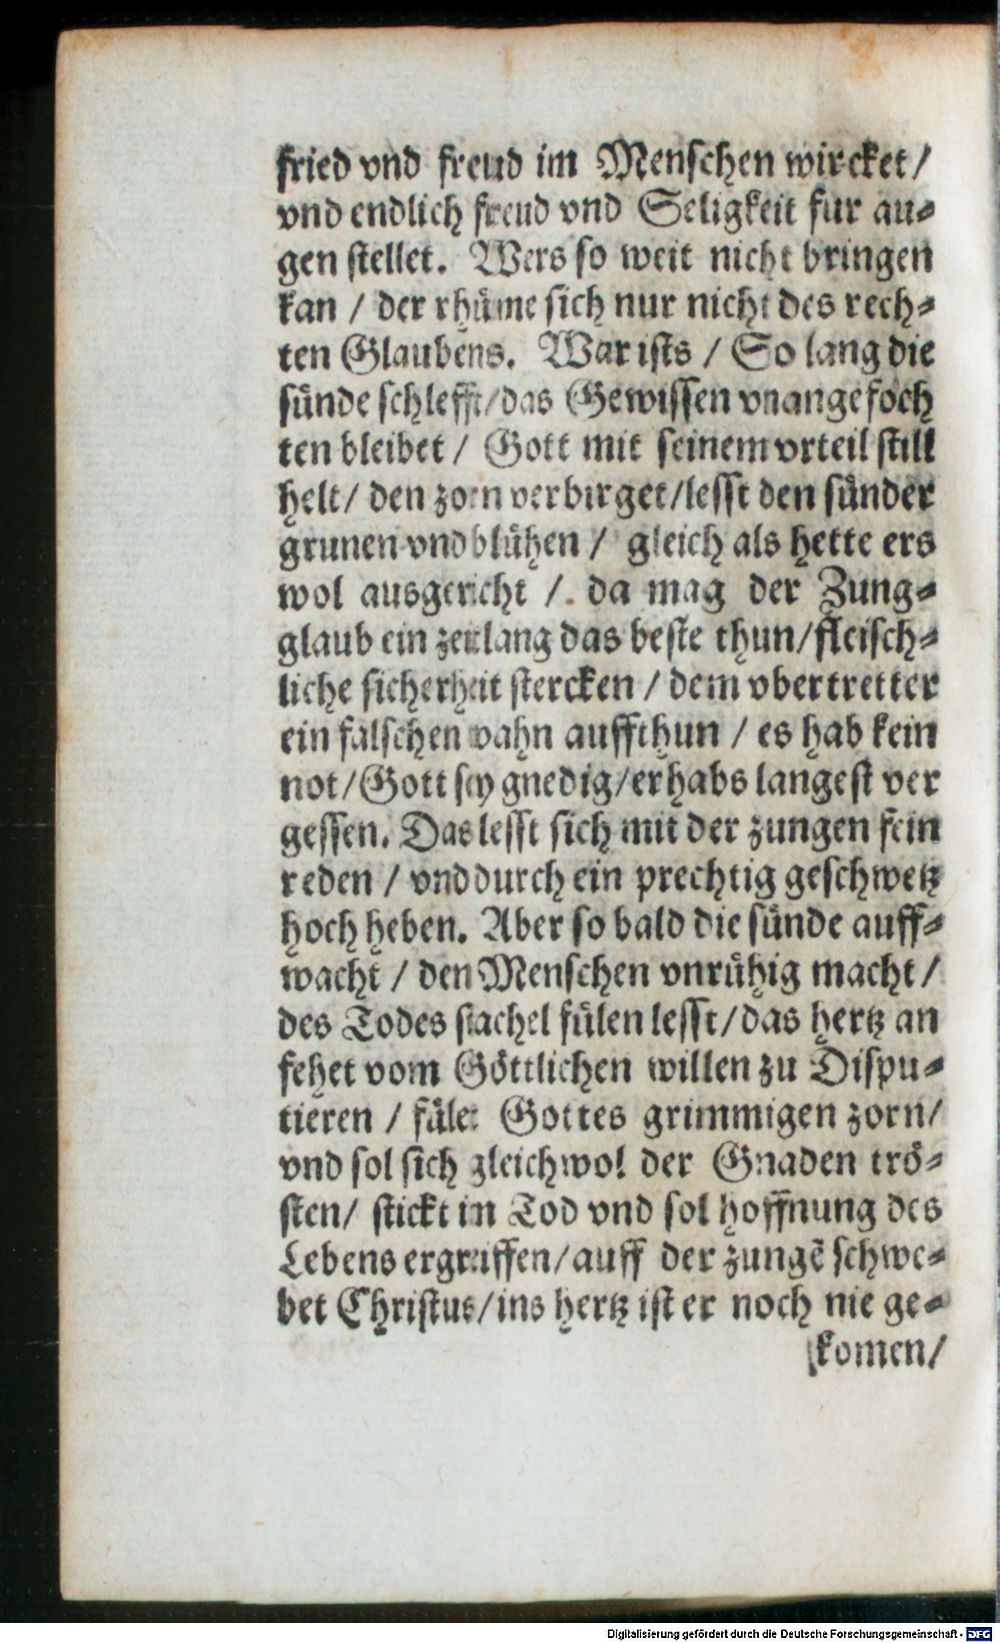 fried vnd freud im Menschen wircket/
vnd endlich freud vnd Seligkeit fur au⸗
gen stellet. Wers so weit nicht bringen
kan / der rhüme sich nur nicht des rech⸗
ten Glaubens. War ists / So lang die
sünde schlefft/das Gewissen vnangefoch
ten bleibet / Gott mit seinem vrteil still
helt/ den zorn verbirget/lesst den sünder
grunen vnd blühen / gleich als hette ers
wol ausgericht /. da mag der Zung⸗
glaub ein zeitlang das beste thun/fleisch⸗
liche sicherheit stercken / dem vbertretter
ein falschen wahn auffthun / es hab kein
not/Gott sey gnedig/er habs langest ver
gessen. Das lesst sich mit der zungen fein
reden / vnd durch ein prechtig geschwetz
hoch heben. Aber so bald die sünde auff⸗
wacht / den Menschen vnrühig macht/
des Todes stachel fülen lesst/das hertz an
fehet vom Göttlichen willen zu Dispu⸗
tieren / fület Gottes grimmigen zorn/
vnd sol sich gleichwol der Gnaden trö⸗
sten/ stickt in Tod vnd sol hoffnung des
Lebens ergreiffen/auff der zungẽ schwe⸗
bet Christus/ins hertz ist er noch nie ge⸗
komen/
Digitalisierung gefördert durch die Deutsche Forschungsgemeinschaft - DFG